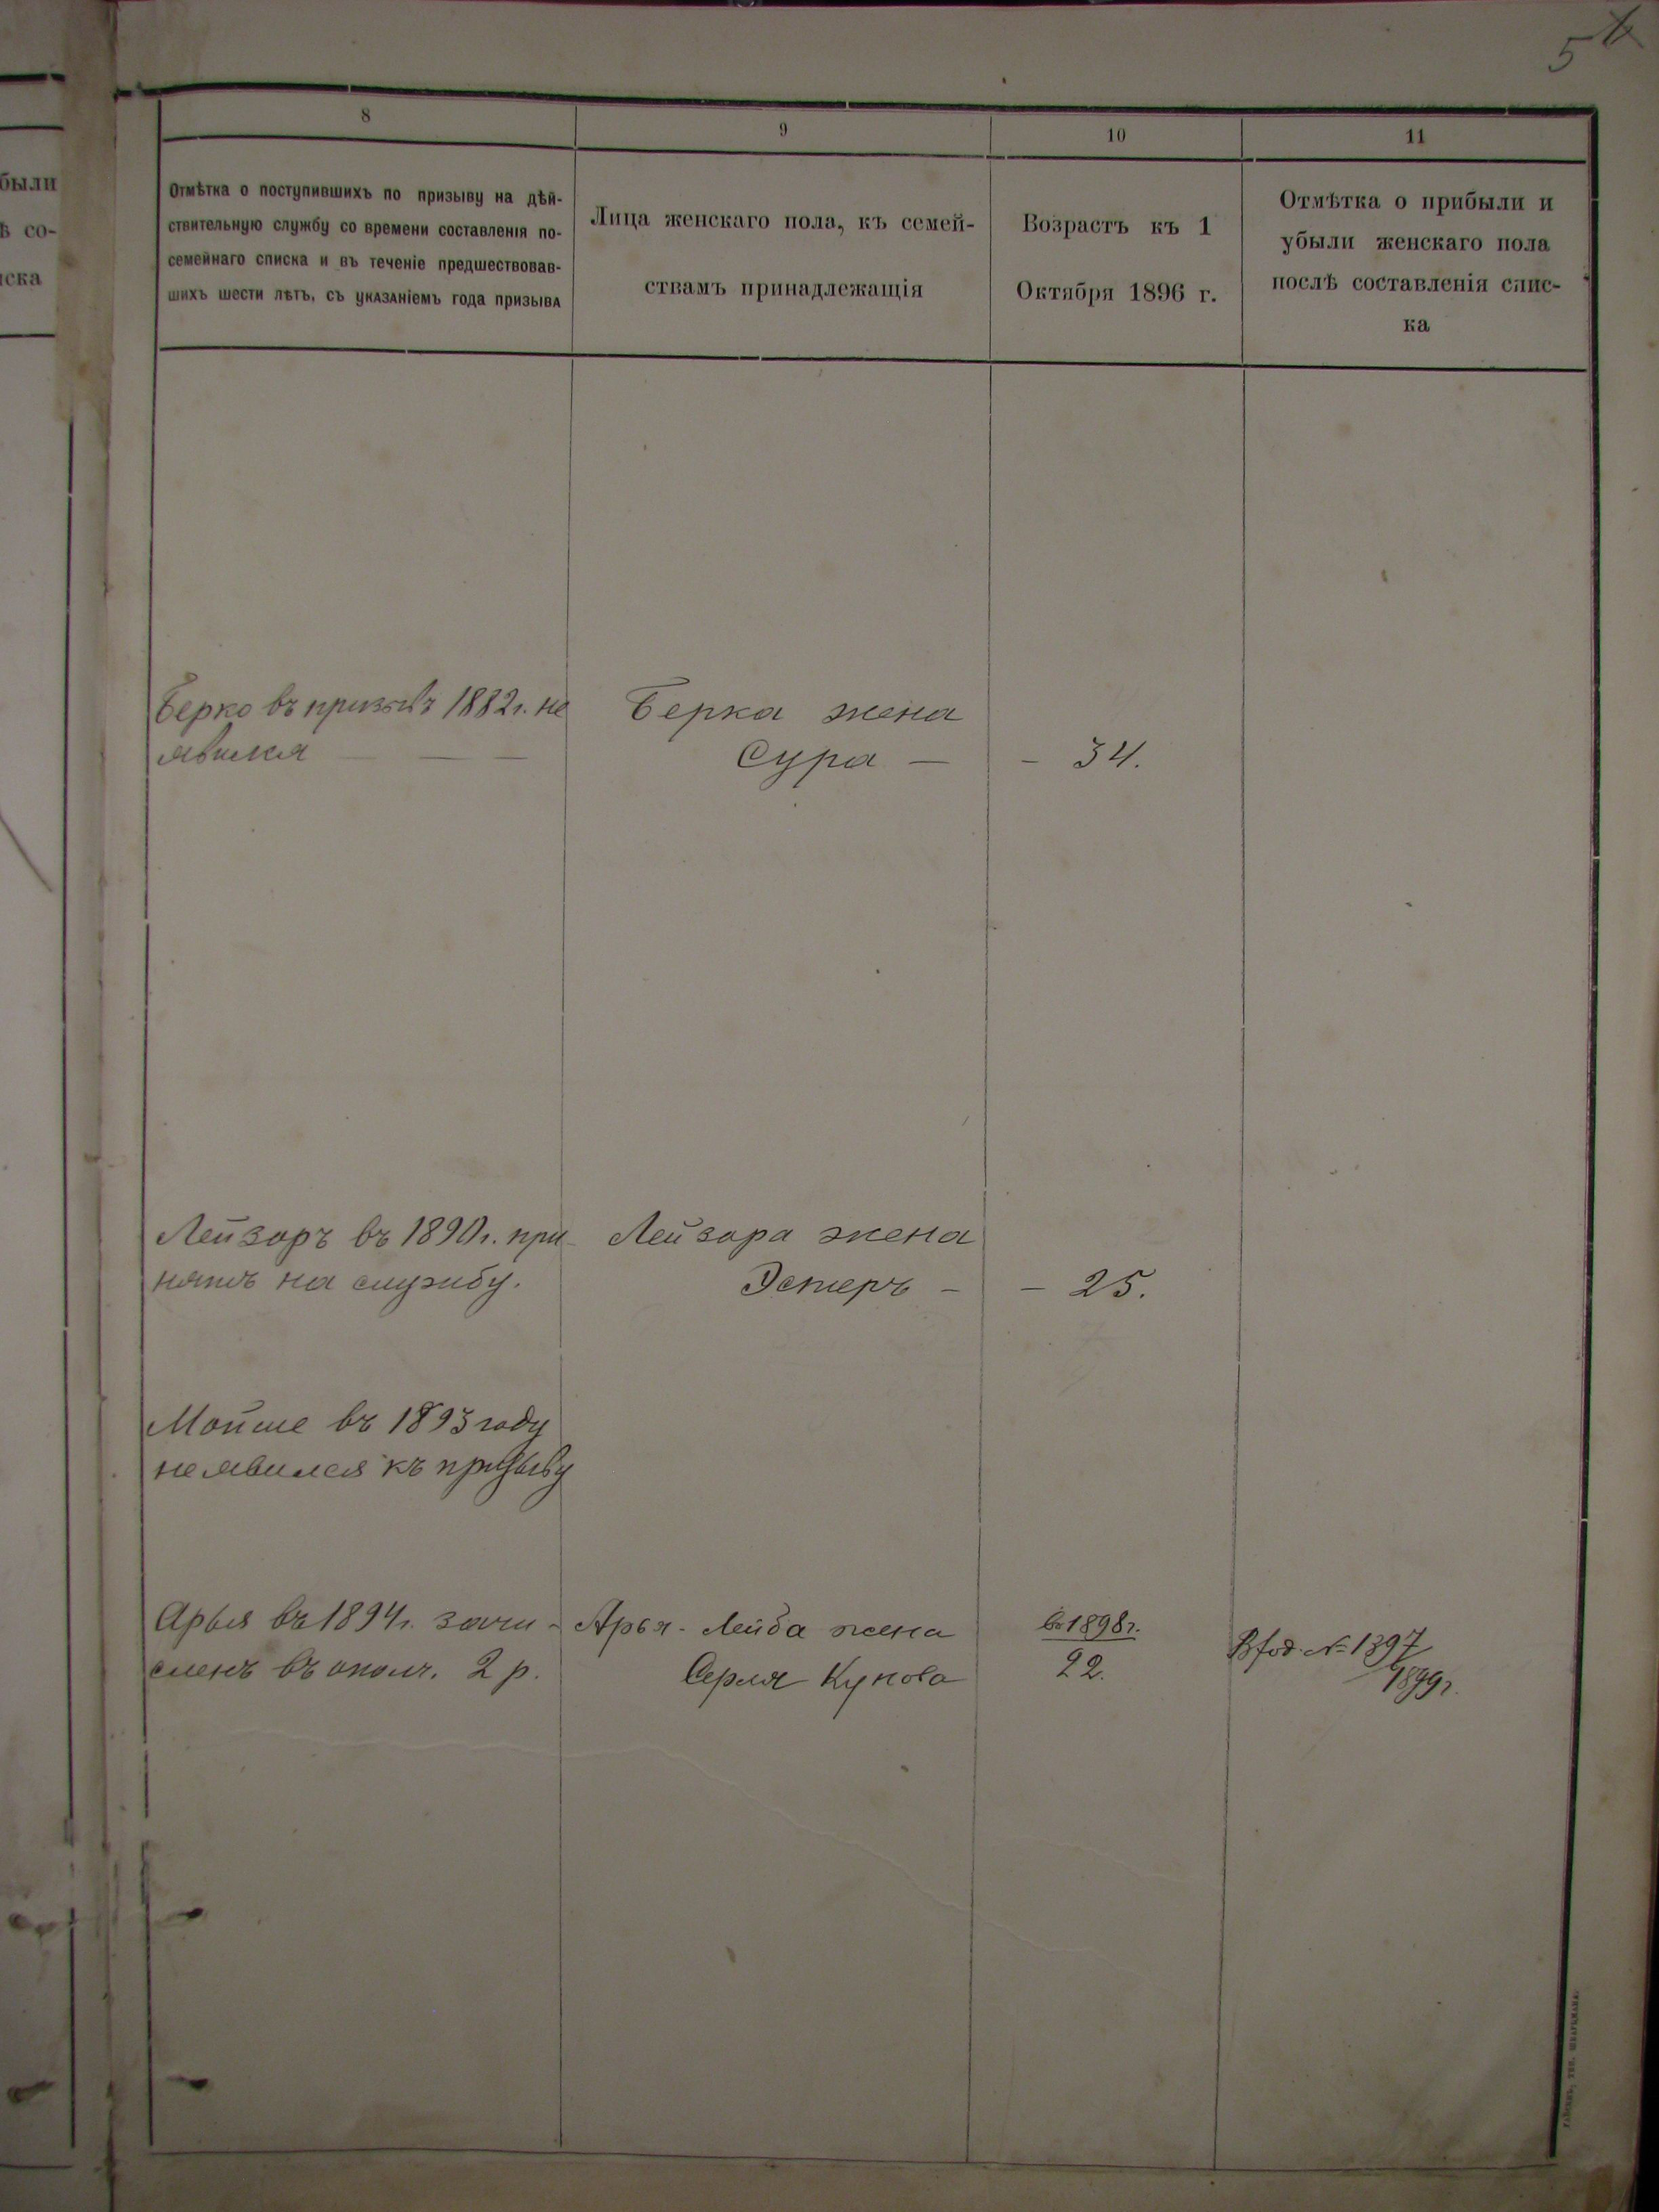 5
были
ѣ со-
иска
8
9
10
11
Отмѣтка о поступившихъ по призыву на дѣй-
ствительную службу со времени составленія по-
семейнаго списка и въ теченіе предшествовав-
шихъ шести лѣтъ, съ указаніемъ года призыва
Лица женскаго пола, къ семей-
ствамъ принадлежащія
Возрастъ къ 1
Октября 1896 г.
Отмѣтка о прибыли и
убыли женскаго пола
послѣ составленія спис-
ка
Берко въ призывъ 1882 г. не
явился
Берка жена
Сура —
— 34.
Лейзоръ въ 1890 г. при-
нятъ на службу.
Лейзора жена
Эстеръ —
— 25.
Мойше въ 1893 году
не явился къ призыву
Арья въ 1894 г. зачи-
сленъ въ ополч. 2 р.
Арья-Лейба жена
Серля Кукова
въ 1898 г.
22.
№ 1397
1899 г.